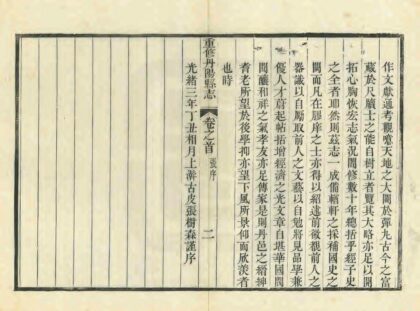 作文獻通考觀憶天地之大閎於彈九古今之富
藏於尺牘士之能自樹立者覽其大略亦足以開
拓心胸恢宏志氣況閱修數十年總括乎經子史
之全者耶然則茲志一成備輶軒之採補國史之
闕而凡在膠庠之士亦得以紹述前徽觀前人之
器識以自厲取前人之文藝以自勉將見品學兼
優人才蔚起帖括增經濟之光文章自堪華國閭
閻釀和祥之氣孝友亦足傳家是則丹邑之縉紳
耆老所望於後學抑亦望下風所景仰而欣羨者
也時
重修丹陽縣志
卷之首
張序
二
光緒三年丁丑相月上澣古皮張樹森謹序